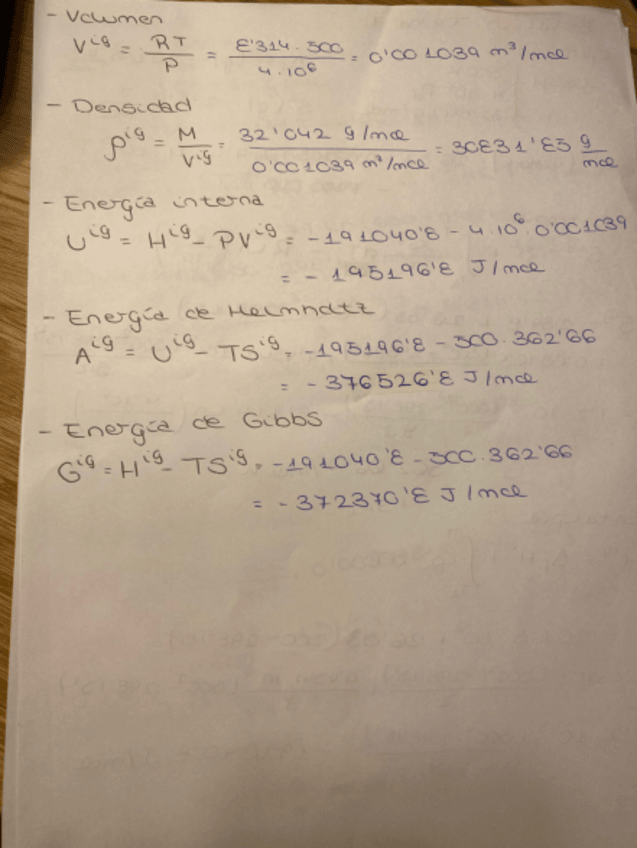 - Volumen
V^ig = RT/P = 8'314 · 500 / 4 · 10^6 = 0'001039 m³/mol
- Densidad
ρ^ig = M/V^ig = 32'042 g/mol / 0'001039 m³/mol = 30831'85 g/mol
- Energía interna
U^ig = H^ig - PV^ig = -191040'8 - 4 · 10^6 · 0'001039
= - 195196'8 J/mol
- Energía de Helmholtz
A^ig = U^ig - TS^ig = -195196'8 - 500 · 362'66
= - 376526'8 J/mol
- Energía de Gibbs
G^ig = H^ig - TS^ig = -191040'8 - 500 · 362'66
= - 372370'8 J/mol